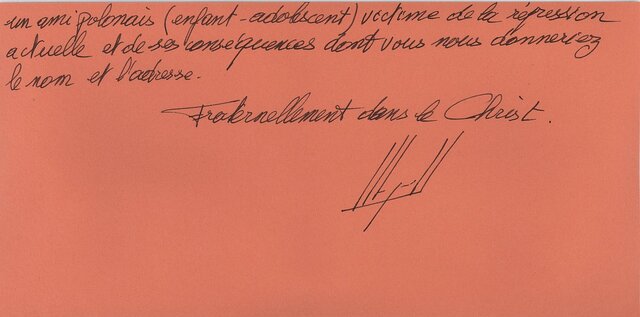 un ami polonais (enfant-adolescent) victime de la répression
actuelle et de ses conséquences dont vous nous donneriez
le nom et l'adresse.
Fraternellement dans le Christ.